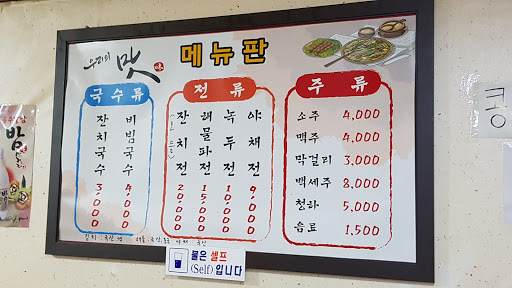 우리의 맛 味
메뉴판
국수류
잔치국수 3,000
비빔국수 4,000
전류
잔치전 20,000
해물파전 15,000
녹두전 10,000
야채전 9,000
주류
소주 4,000
맥주 4,000
막걸리 3,000
백세주 8,000
청하 5,000
음료 1,500
물은 셀프
(Self) 입니다
콩